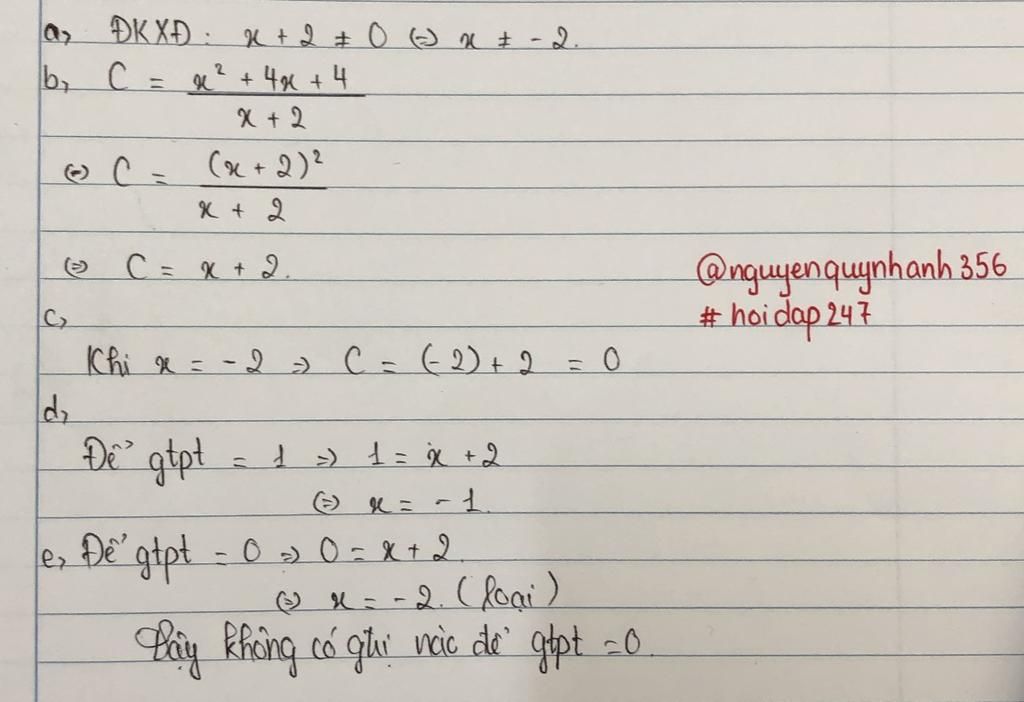 a, ĐKXĐ: x + 2 ≠ 0 ⇔ x ≠ -2.
b, C = x² + 4x + 4
x + 2
⇔ C = (x + 2)²
x + 2
⇔ C = x + 2.
@nguyenquynhanh356
c,
# hoidap247
Khi x = -2 ⇒ C = (-2) + 2 = 0
d,
Để gtpt = 1 ⇒ 1 = x + 2
⇔ x = -1.
e, Để gtpt = 0 ⇒ 0 = x + 2.
⇔ x = -2. (loại)
Vậy không có gtri nào để gtpt = 0.